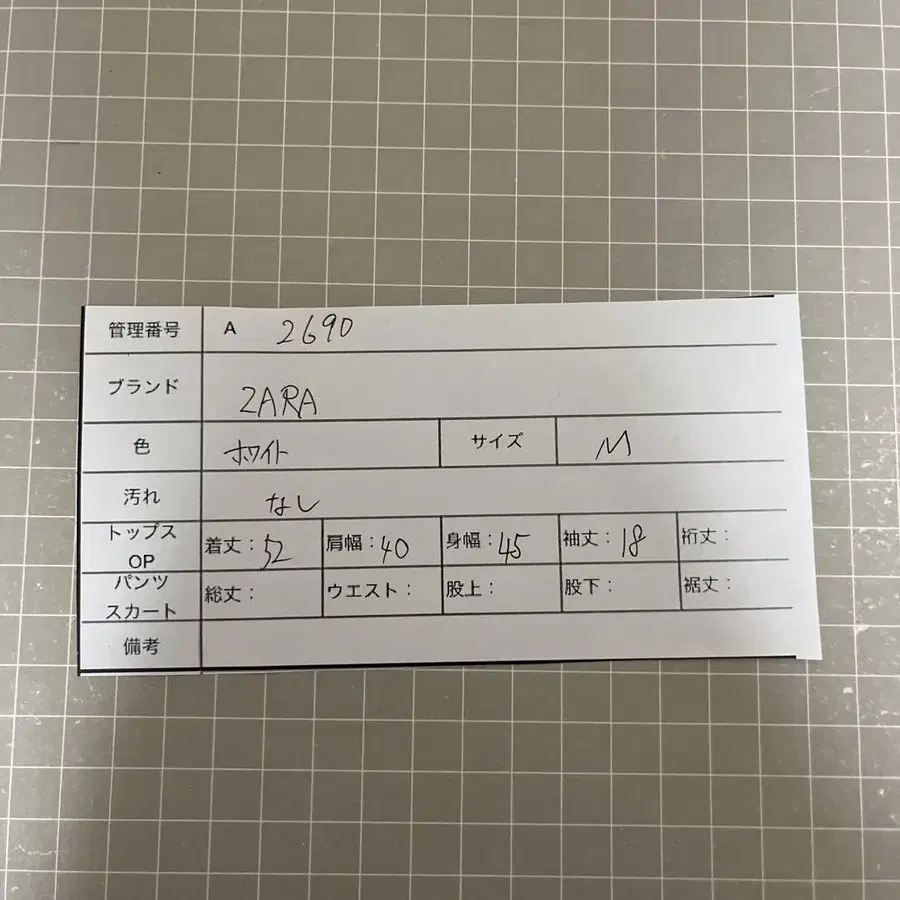 管理番号 A 2690
ブランド ZARA
色 ホワイト サイズ M
汚れ なし
トップス
OP 着丈：52 肩幅：40 身幅：45 袖丈：18 裄丈：
パンツ
スカート 総丈： ウエスト： 股上： 股下： 裾丈：
備考